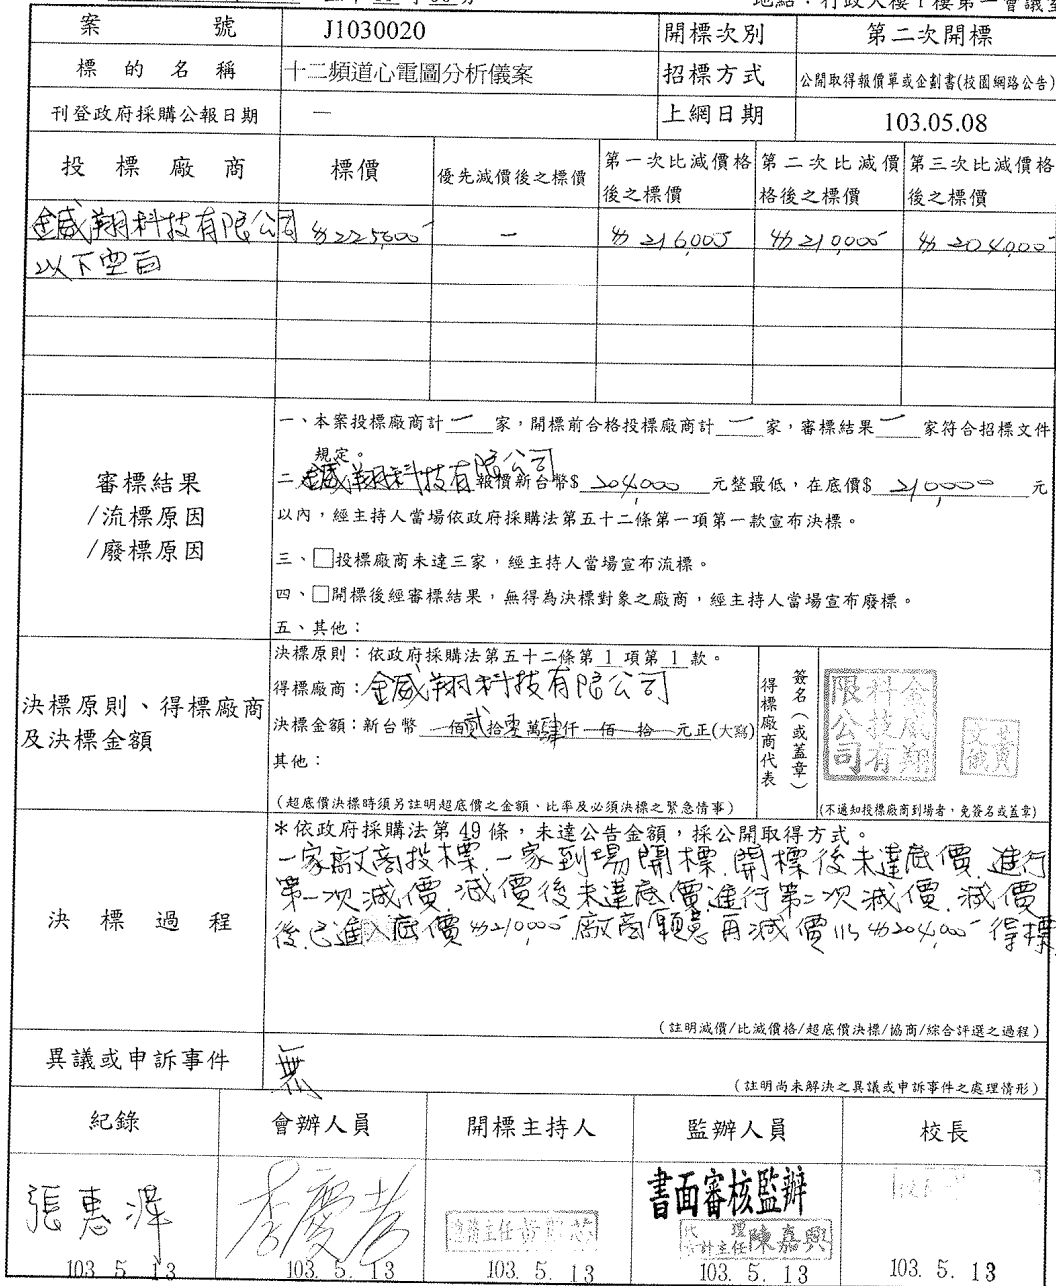 案號 J1030020 開標次別 第二次開標
標的名稱 十二頻道心電圖分析儀案 招標方式 公開取得報價單或企劃書(校園網路公告)
刊登政府採購公報日期 — 上網日期 103.05.08
投標廠商 標價 優先減價後之標價 第一次比減價格後之標價 第二次比減價格後之標價 第三次比減價格後之標價
金威翔科技有限公司 – 210,000 204,000
以下空白
審標結果
/流標原因
/廢標原因
一、本案投標廠商計一家,開標前合格投標廠商計一家,審標結果一家符合招標文件
規定。
二 金威翔科技有限公司 報價新台幣$ 204,000 元整最低,在底價$ 210000 元
以內,經主持人當場依政府採購法第五十二條第一項第一款宣布決標。
三、□投標廠商未達三家,經主持人當場宣布流標。
四、□開標後經審標結果,無得為決標對象之廠商,經主持人當場宣布廢標。
五、其他:
決標原則、得標廠商
及決標金額
決標原則:依政府採購法第五十二條第 1 項第 1 款。
得標廠商:金威翔科技有限公司
決標金額:新台幣 一佰貳拾零萬肆仟一佰一拾一元正(大寫)
其他:
(超底價決標時須另註明超底價之金額、比率及必須決標之緊急情事)
得標廠商代表
簽名(或蓋章)
金威翔
科技有
限公司
(不通知投標廠商到場者,免簽名或蓋章)
決標過程
*依政府採購法第 49 條,未達公告金額,採公開取得方式。
一家廠商投標,一家到場開標,開標後未達底價,進行
第一次減價,減價後未達底價,進行第二次減價,減價
後已進入底價 210,000 廠商願意再減價 204,000 得標
(註明減價/比減價格/超底價決標/協商/綜合評選之過程)
異議或申訴事件
無
(註明尚未解決之異議或申訴事件之處理情形)
紀錄 會辦人員 開標主持人 監辦人員 校長
書面審核監辦
張惠 總務主任 代理會計主任陳嘉興
103. 5. 13 103. 5. 13 103. 5. 13 103. 5. 13 103. 5. 13